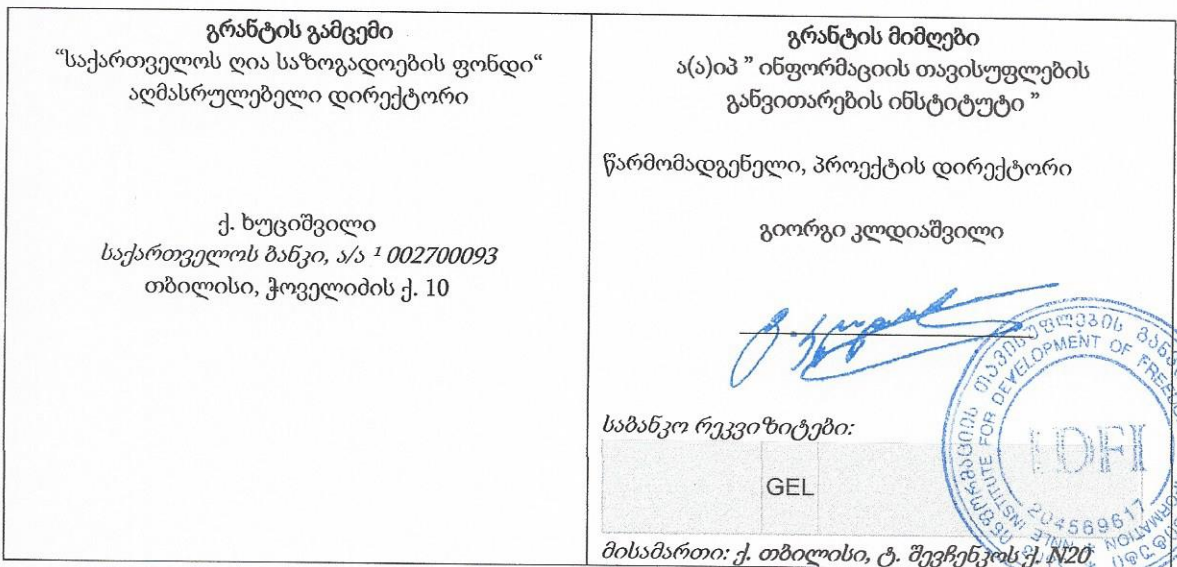 გრანტის გამცემი
“საქართველოს ღია საზოგადოების ფონდი“
აღმასრულებელი დირექტორი
ქ. ხუციშვილი
საქართველოს ბანკი, ა/ა ¹ 002700093
თბილისი, ჭოველიძის ქ. 10
გრანტის მიმღები
ა(ა)იპ ” ინფორმაციის თავისუფლების
განვითარების ინსტიტუტი ”
წარმომადგენელი, პროექტის დირექტორი
გიორგი კლდიაშვილი
საბანკო რეკვიზიტები:
GEL
მისამართი: ქ. თბილისი, ტ. შევჩენკოს ქ. N20
ინფორმაციის თავისუფლების
INSTITUTE FOR DEVELOPMENT OF
IDFI
204569617